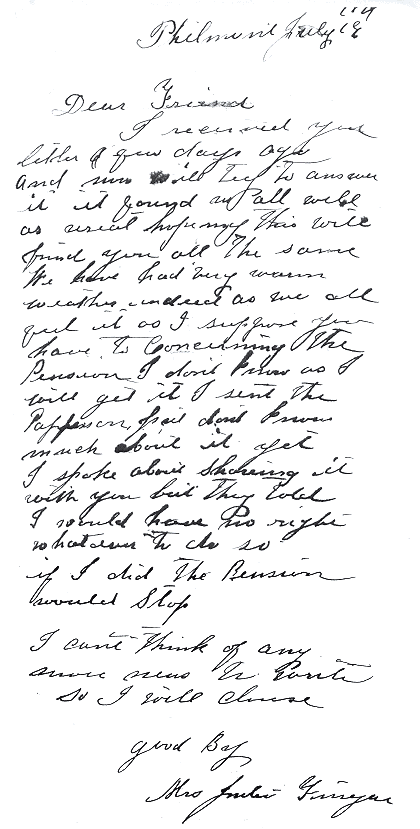 Philmont July 19
Dear Friend
I received your
letter a few days ago
And now will try to answer
it it found us all well
as usual hopeing this will
find you all the same
We have had very warm
weather indeed as we all
felt it as I suppose you
have to Concerning the
Pension I dont know as I
will get it I sent the
Pappers on but dont know
much about it yet
I spoke about sharing it
with you but they told
I would have no right
whatever to do so
if I did the Pension
would Stop
I cant think of any
more news to write
so I will close
good By
Mrs Finegan